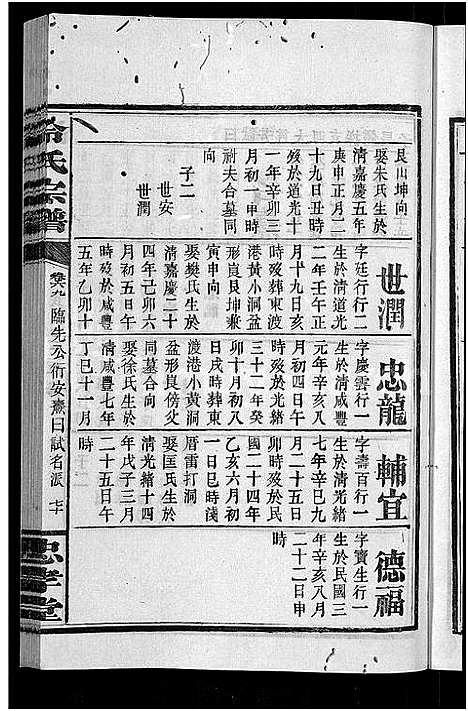 艮山坤向
娶朱氏生於
清嘉慶五年
庚申正月二
十九日丑時
歿於道光十
一年辛卯三
月初一甲時
祔夫合墓同
向
子二
世安
世潤
世潤
字廷行行二
生於清道光
二年壬午正
月十九日亥
時歿葬東渡
港黃小洞盆
形崀艮坤兼
寅申向
娶樊氏生於
清嘉慶二十
四年己卯六
月初五日午
時歿於咸豐
五年乙卯十
忠龍
字慶雲行一
生於清咸豐
元年辛亥八
月初四日午
時歿於光緒
三十二年癸
卯十月初六
日戌時葬東
渡港小黃洞
盆形艮傍父
同墓合向
娶徐氏生於
清咸豐七年
丁巳十一月
輔宜
字壽百行一
生於清光緒
七年辛巳九
月二十五日
卯時歿於民
國二十四年
乙亥六月初
一日巳時葬
厝雷打洞
娶匡氏生於
清光緒十四
年戊子三月
二十五日午
時
德福
字寶生行一
生於民國三
年辛亥八月
二十二日申
時
氏宗譜
卷六九
臨先公衍安燾曰試名派
忠孝堂